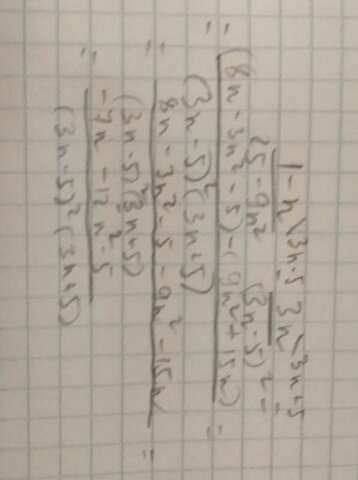 1 - n \ 3n-5   3n \ 3n+5
25 - 9n²   (3n-5)² =
= (8n - 3n² - 5) - (9n² + 15n) =
(3n-5)² (3n+5)
= 8n - 3n² - 5 - 9n² - 15n =
(3n-5)² (3n+5)
= -7n - 12n² - 5
(3n-5)² (3n+5)